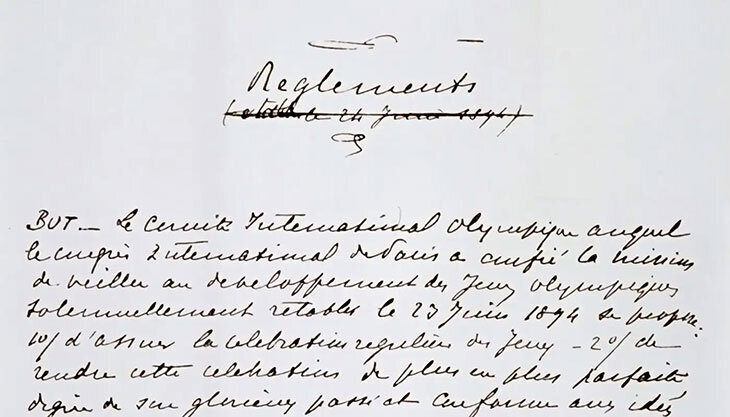 Reglements
(etablis le 24 Juin 1894)
BUT _ Le Comité International Olympique auquel
le congrès International de Paris a confié la mission
de veiller au developpement des Jeux olympiques
solennellement retablis le 23 Juin 1894 se propose:
1o/ d'assurer la celebration reguliere des Jeux _ 2o/ de
rendre cette celebration de plus en plus parfaite
digne de son glorieux passé et conforme aux idées